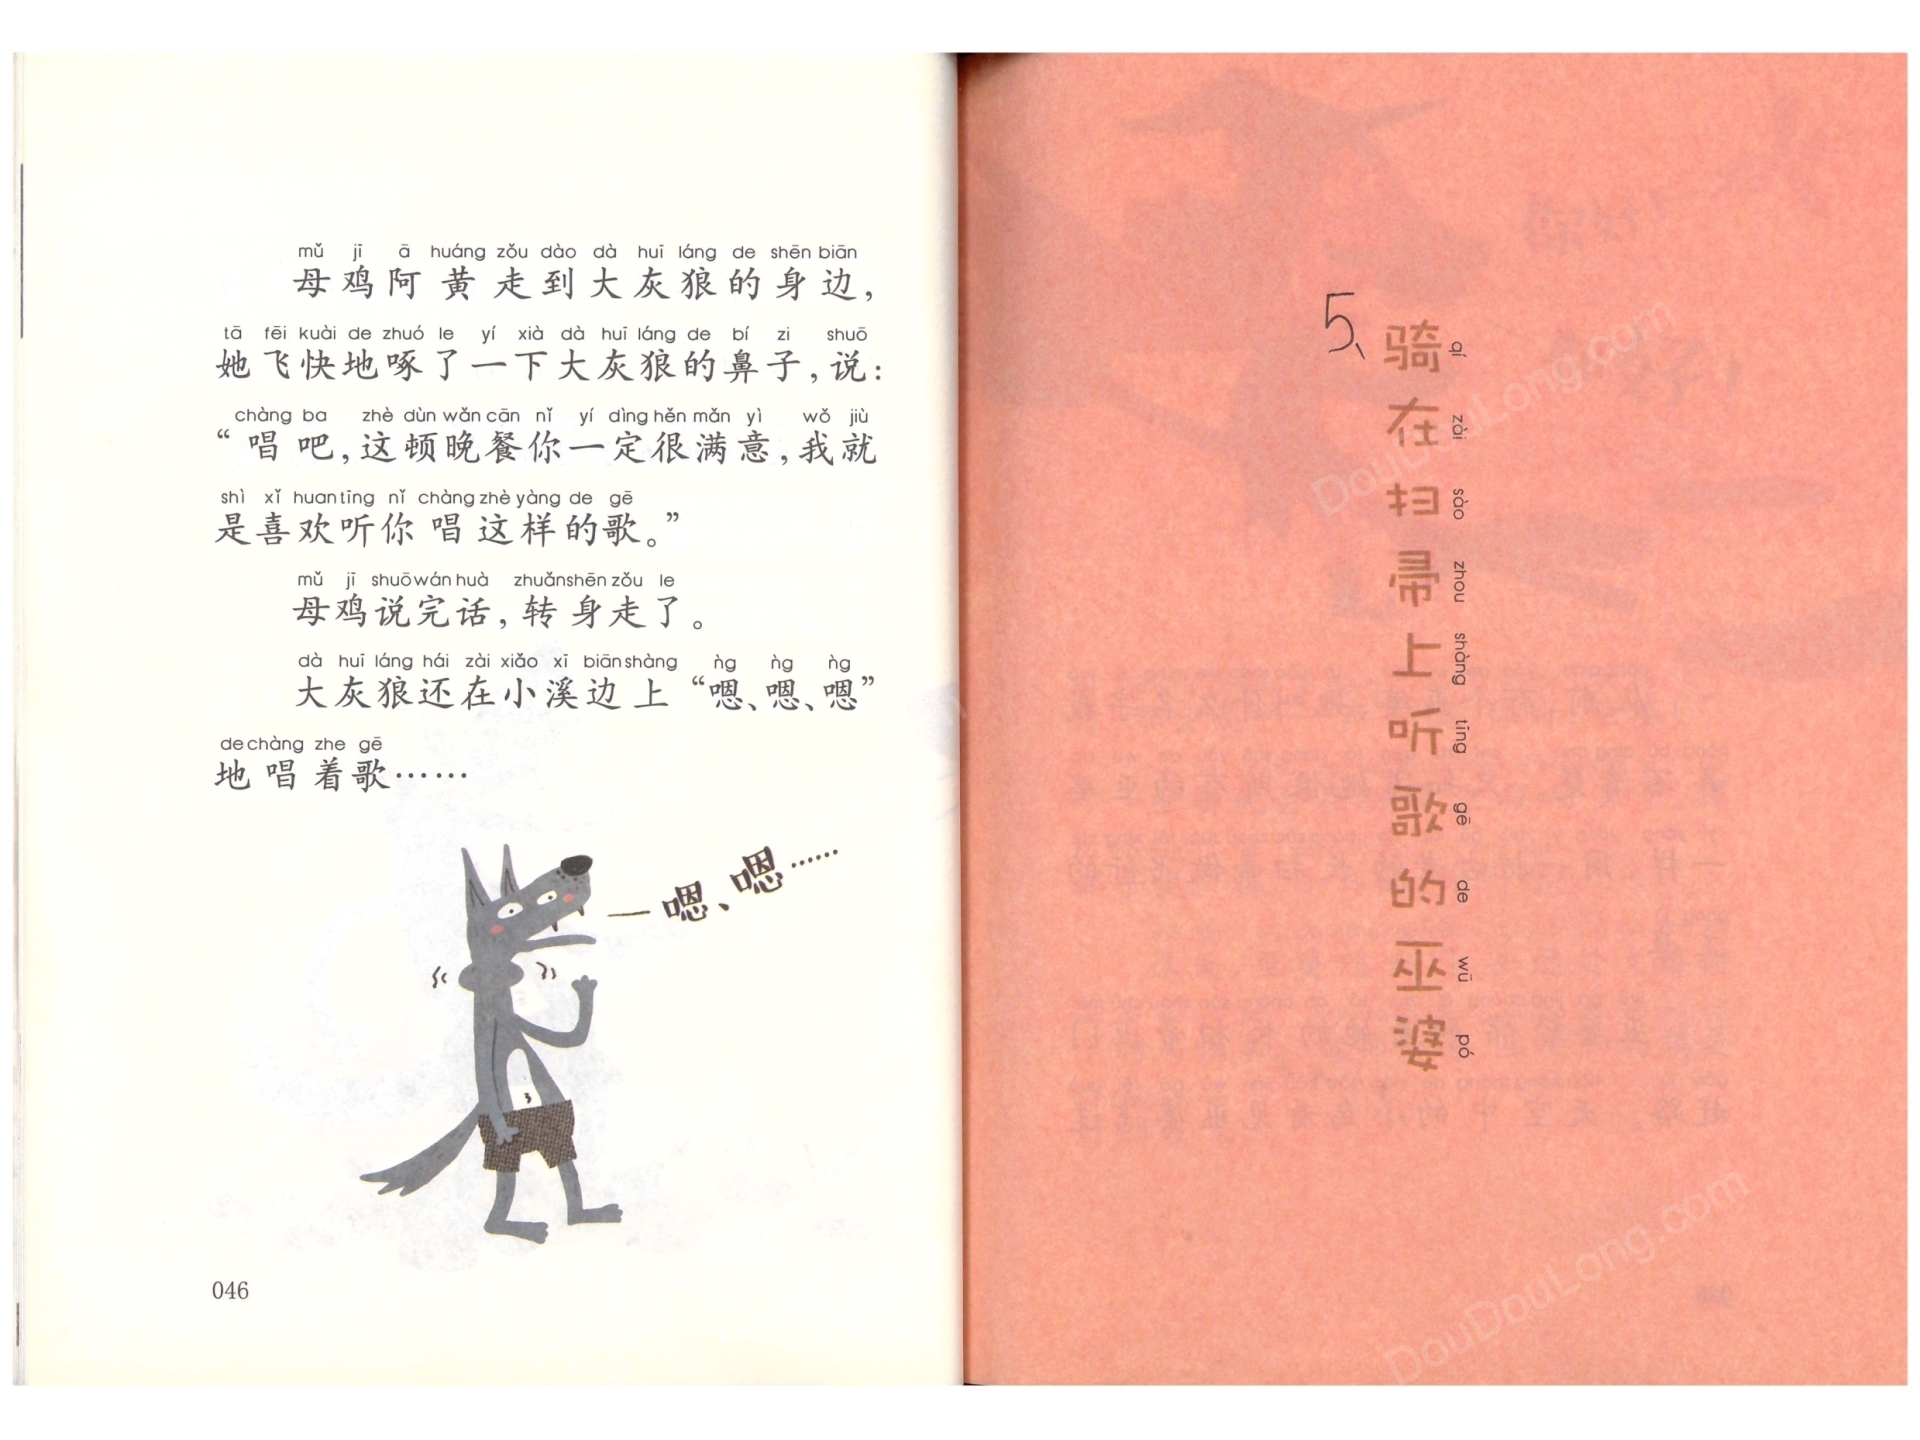 mǔ jī ā huáng zǒu dào dà huī láng de shēn biān
母鸡阿黄走到大灰狼的身边，
tā fēi kuài de zhuó le yí xià dà huī láng de bí zi shuō
她飞快地啄了一下大灰狼的鼻子，说：
chàng ba zhè dùn wǎn cān nǐ yí dìng hěn mǎn yì wǒ jiù
“唱吧，这顿晚餐你一定很满意，我就
shì xǐ huan tīng nǐ chàng zhè yàng de gē
是喜欢听你唱这样的歌。”
mǔ jī shuō wán huà zhuǎn shēn zǒu le
母鸡说完话，转身走了。
dà huī láng hái zài xiǎo xī biān shàng ǹg ǹg ǹg
大灰狼还在小溪边上“嗯、嗯、嗯”
de chàng zhe gē
地唱着歌……
—嗯、嗯……
046
5、
骑在扫帚上听歌的巫婆
qí zài sào zhou shàng tīng gē de wū pó
DouDouLong.com
DouDouLong.com